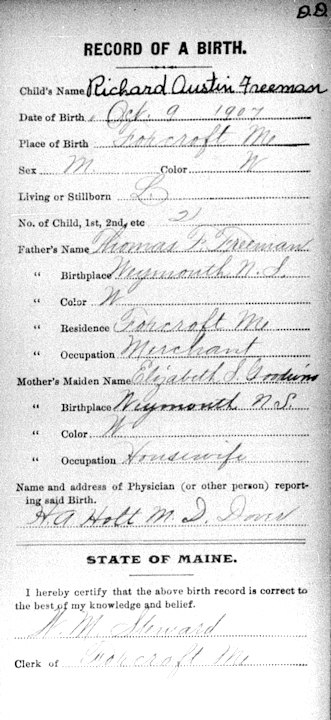 D.D.
RECORD OF A BIRTH.
Child's Name Richard Austin Freeman
Date of Birth, Oct. 9 1907
Place of Birth Foxcroft Me
Sex M Color W
Living or Stillborn L
No. of Child, 1st, 2nd, etc 2
Father's Name Thomas F. Freeman
" Birthplace Weymouth N. S.
" Color W
" Residence Foxcroft Me
" Occupation Merchant
Mother's Maiden Name Elizabeth S Goodwin
" Birthplace Weymouth N. S.
" Color W
" Occupation Housewife
Name and address of Physician (or other person) report-
ing said Birth.
H. A. Holt M. D. Dover
STATE OF MAINE.
I hereby certify that the above birth record is correct to
the best of my knowledge and belief.
W. M. Steward
Clerk of Foxcroft Me